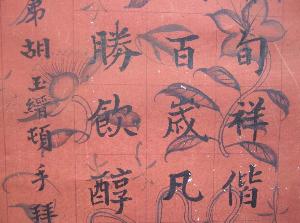 旬祥偕
百歲凡
勝飲醇
弟胡玉縉頓手拜